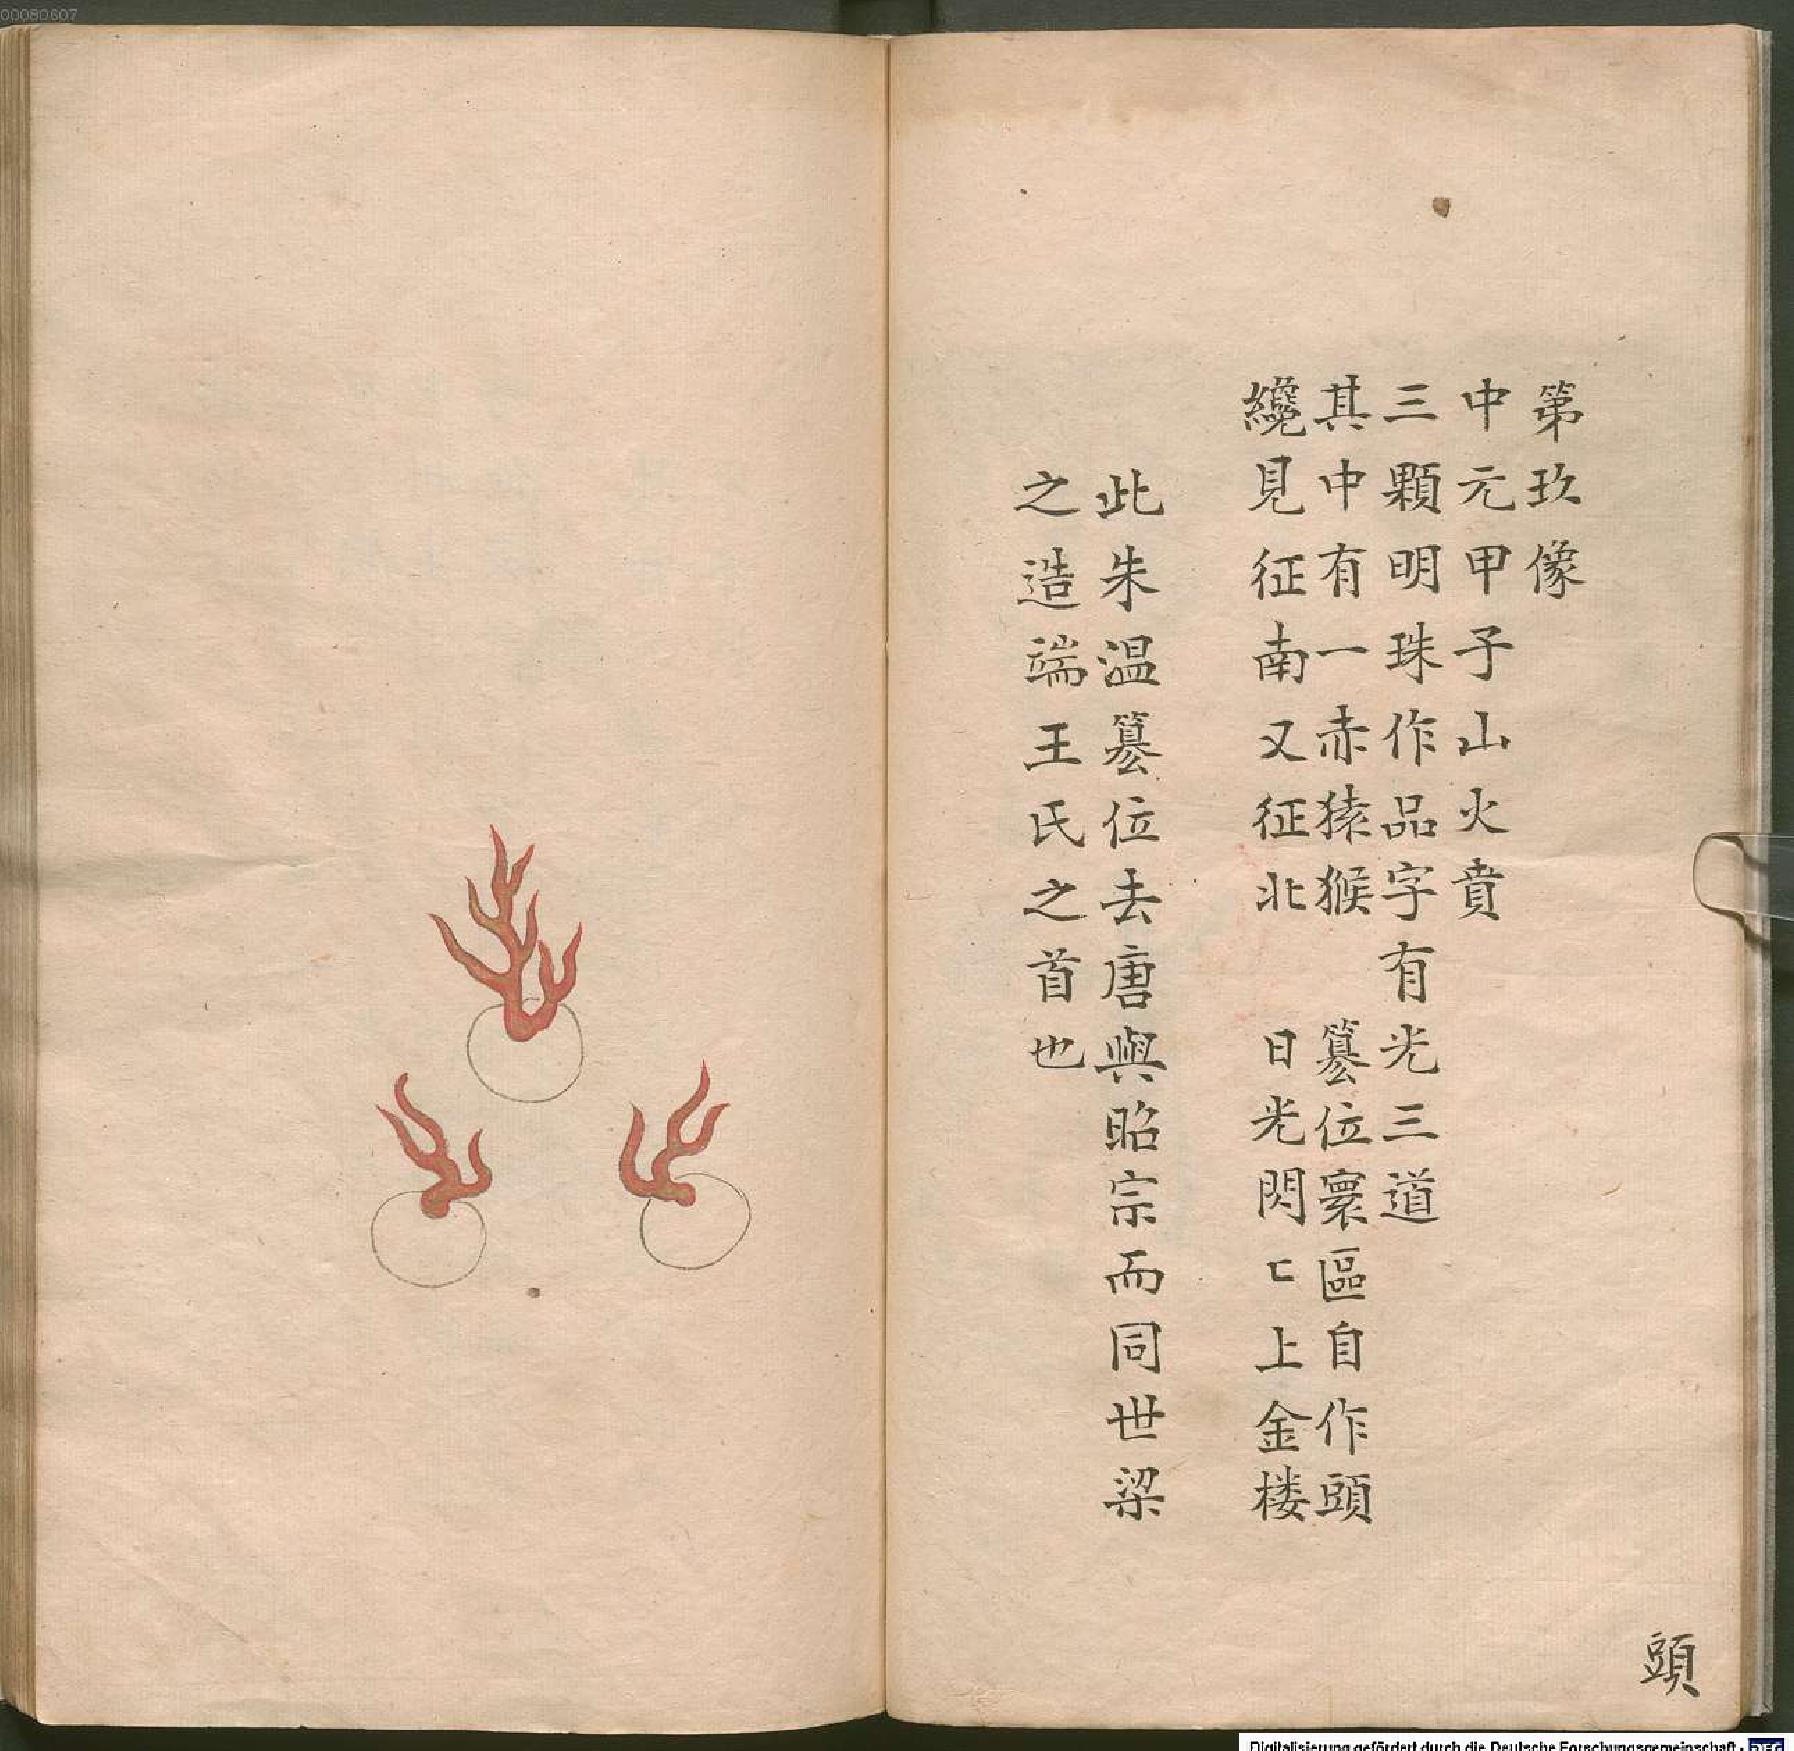 第玖像
中元甲子山火賁
三顆明珠作品字有光三道
其中有一赤猿猴　篡位寰區自作頭
纔見征南又征北　日光閃〻上金楼
此朱温篡位去唐興昭宗而同世梁
之造端王氏之首也
頭
00080607
Digitalisierung gefördert durch die Deutsche Forschungsgemeinschaft · DFG